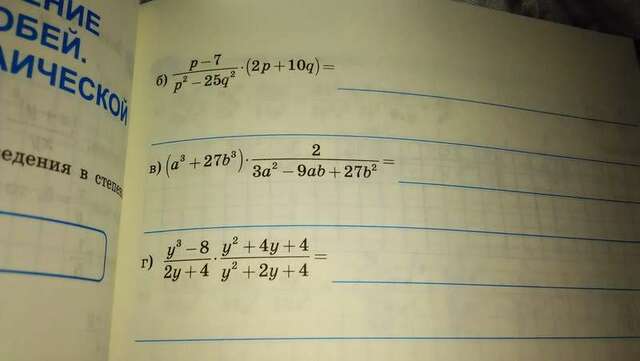 ЕНИЕ
ОБЕЙ.
АИЧЕСКОЙ
едения в степен
б) (p − 7)/(p² − 25q²) · (2p + 10q) =
в) (a³ + 27b³) · 2/(3a² − 9ab + 27b²) =
г) (y³ − 8)/(2y + 4) · (y² + 4y + 4)/(y² + 2y + 4) =